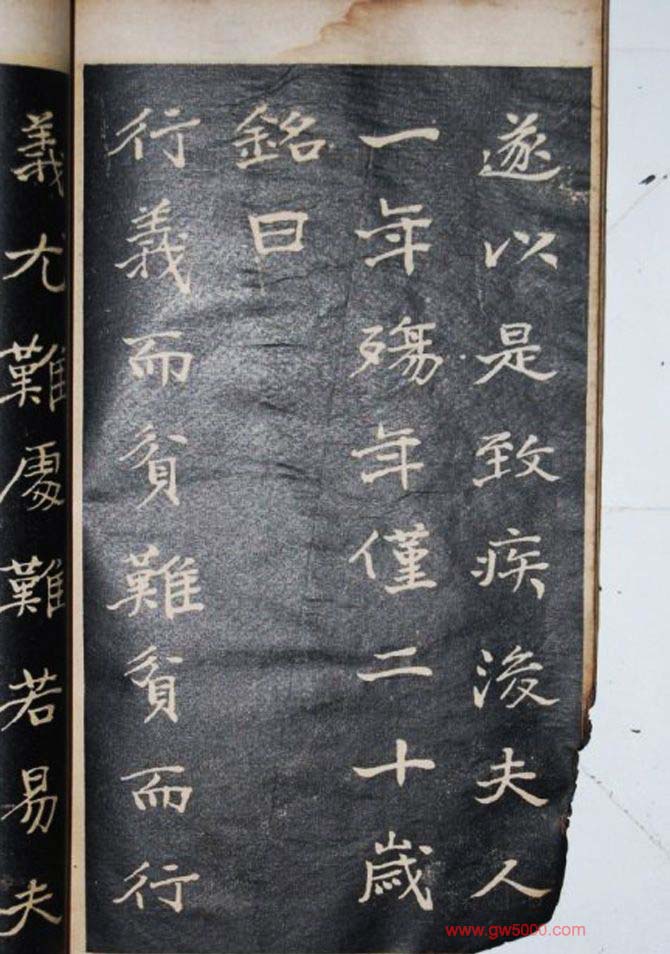 遂以是致疾後夫人
一年殤年僅二十歲
銘曰
行義而貧難貧而行
義尤難處難若易夫
www.gw5000.com